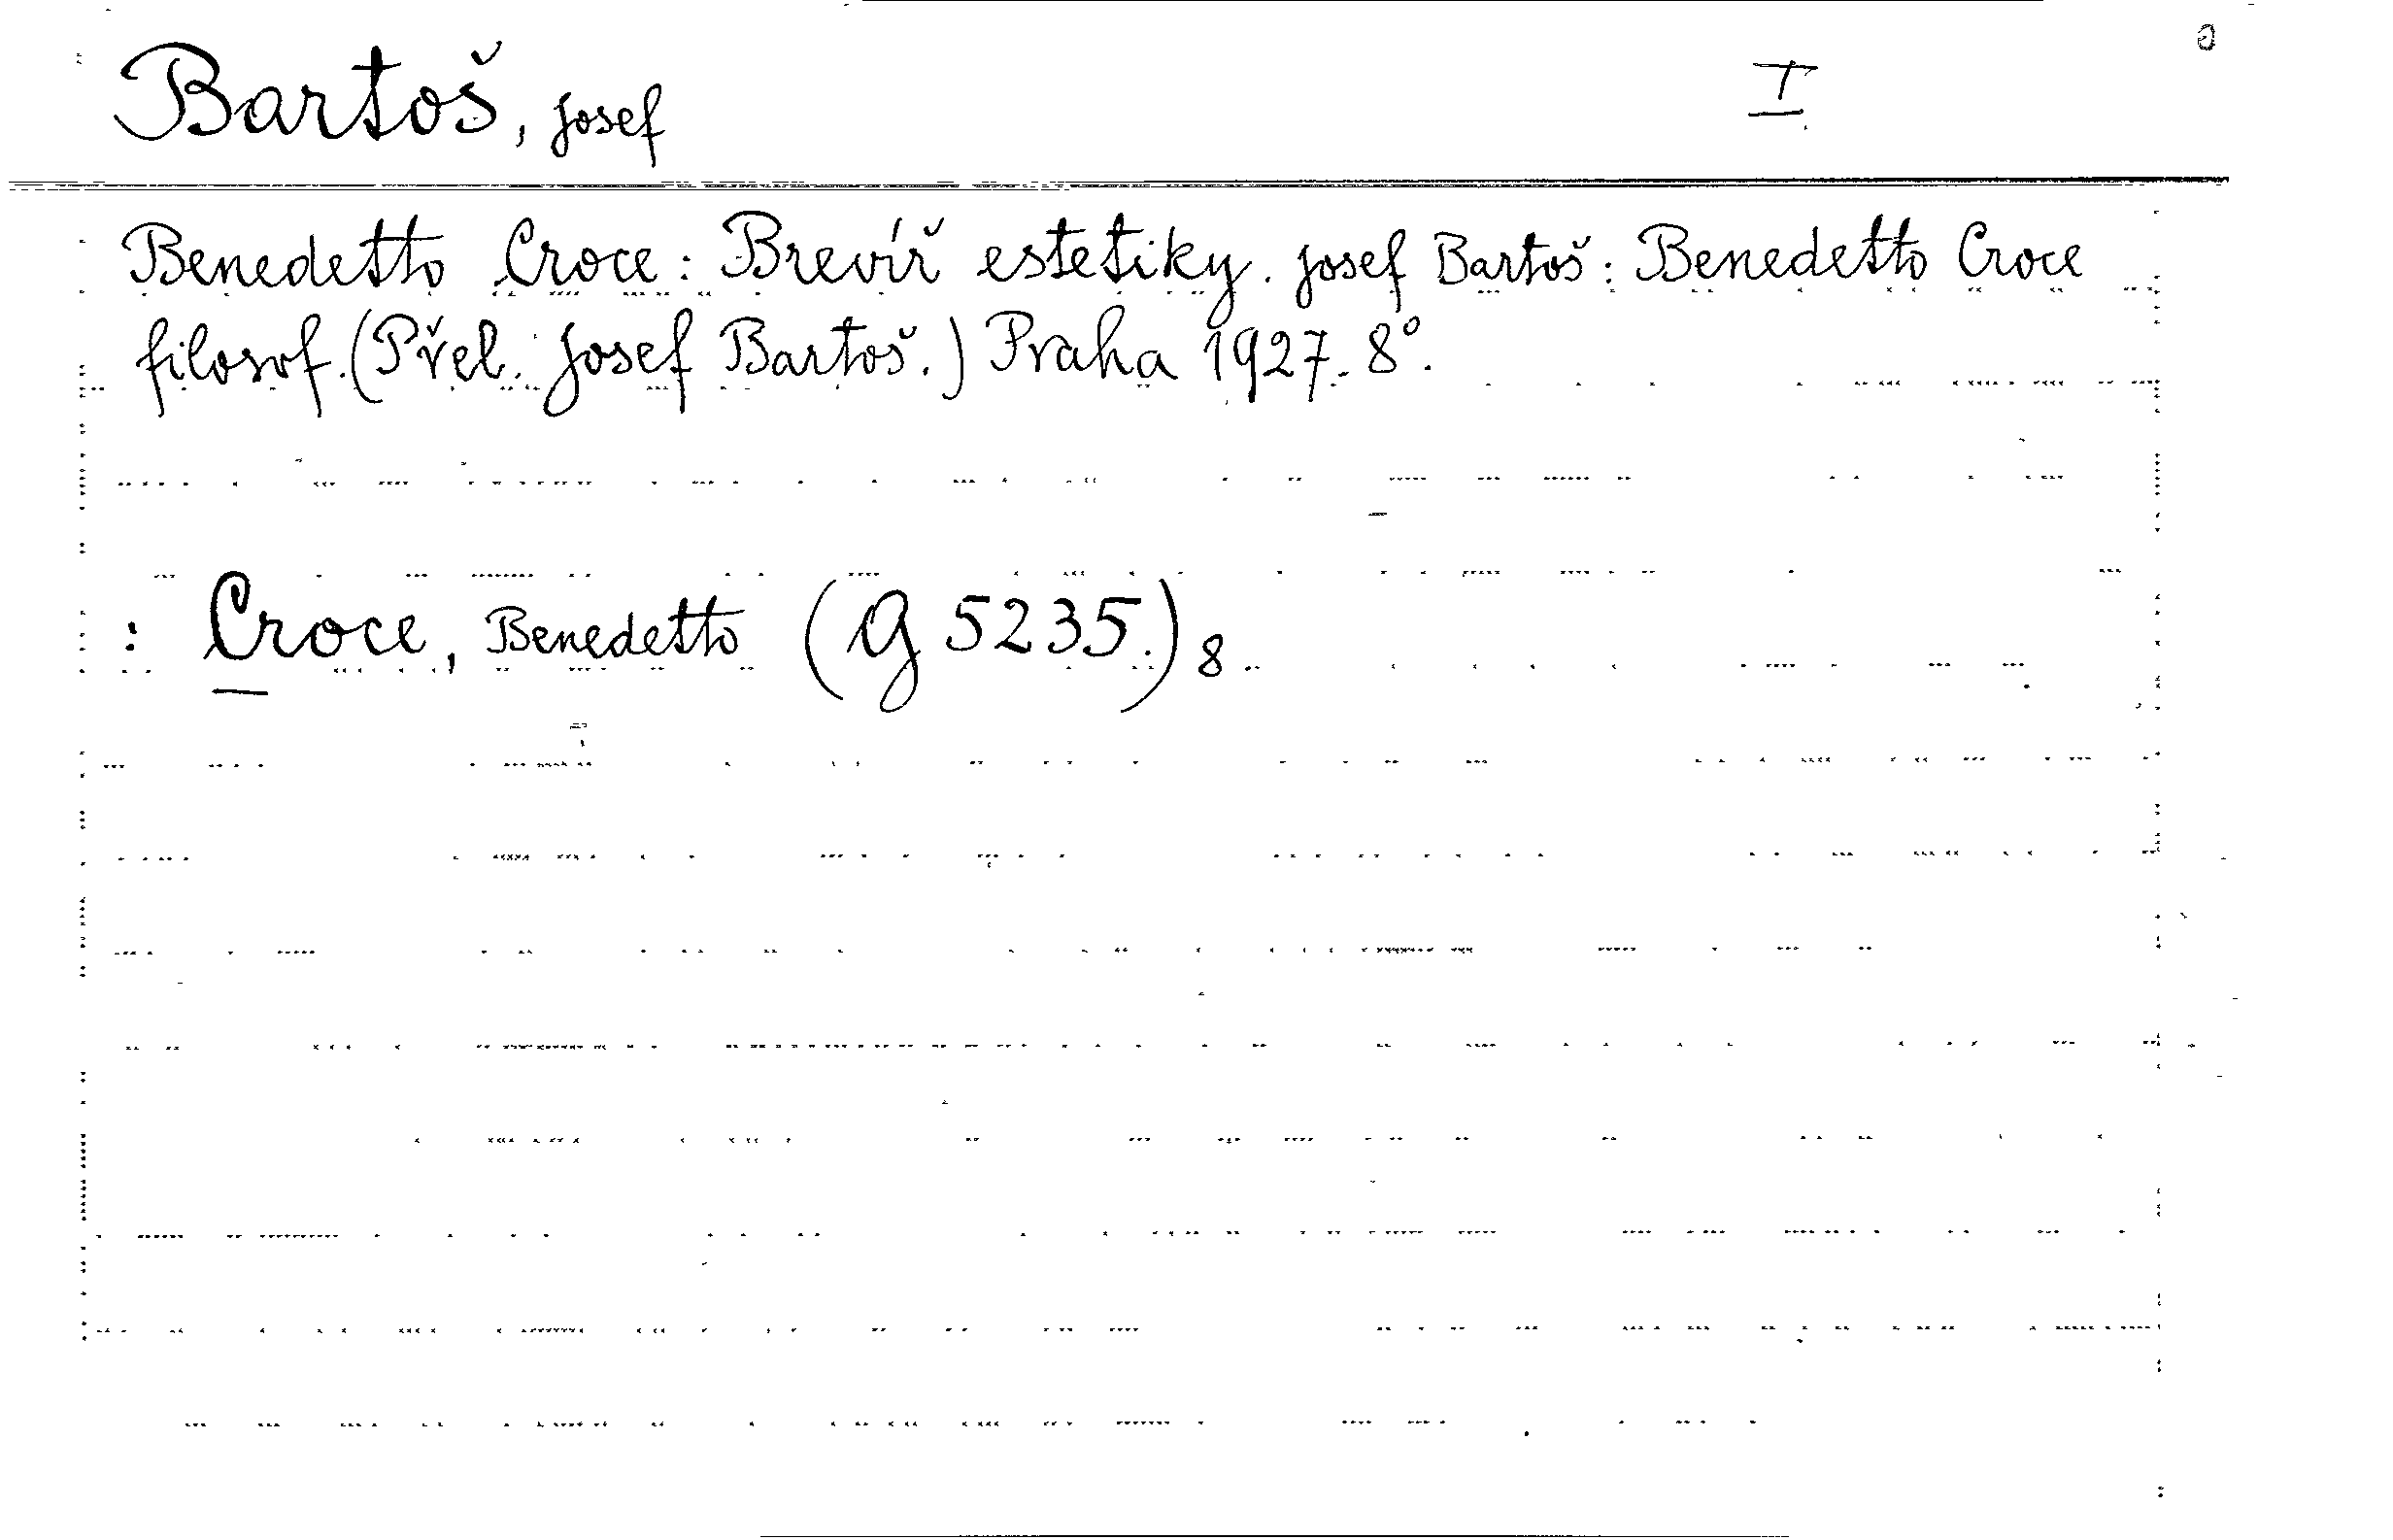 Bartoš, Josef I
Benedetto Croce: Brevíř estetiky. Josef Bartoš: Benedetto Croce
filosof. (Přel. Josef Bartoš.) Praha 1927. 8°.
: Croce, Benedetto (G 5235.) 8.